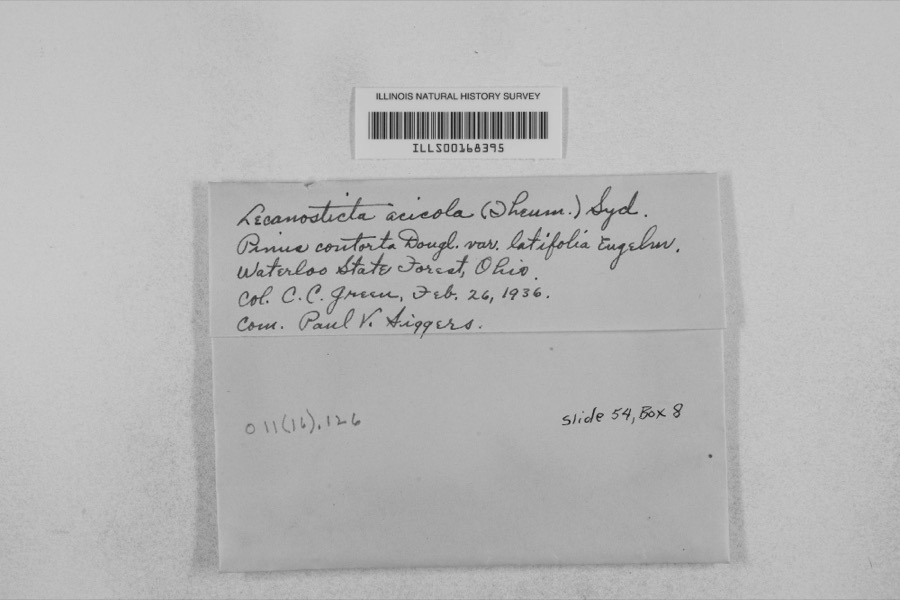 ILLINOIS NATURAL HISTORY SURVEY
ILLS00168395
Lecanosticta acicola (Thum.) Syd.
Pinus contorta Dougl. var. latifolia Engelm.
Waterloo State Forest, Ohio.
Col. C. C. Green, Feb. 26, 1936.
Com. Paul V. Siggers.
011(16).126
Slide 54, Box 8